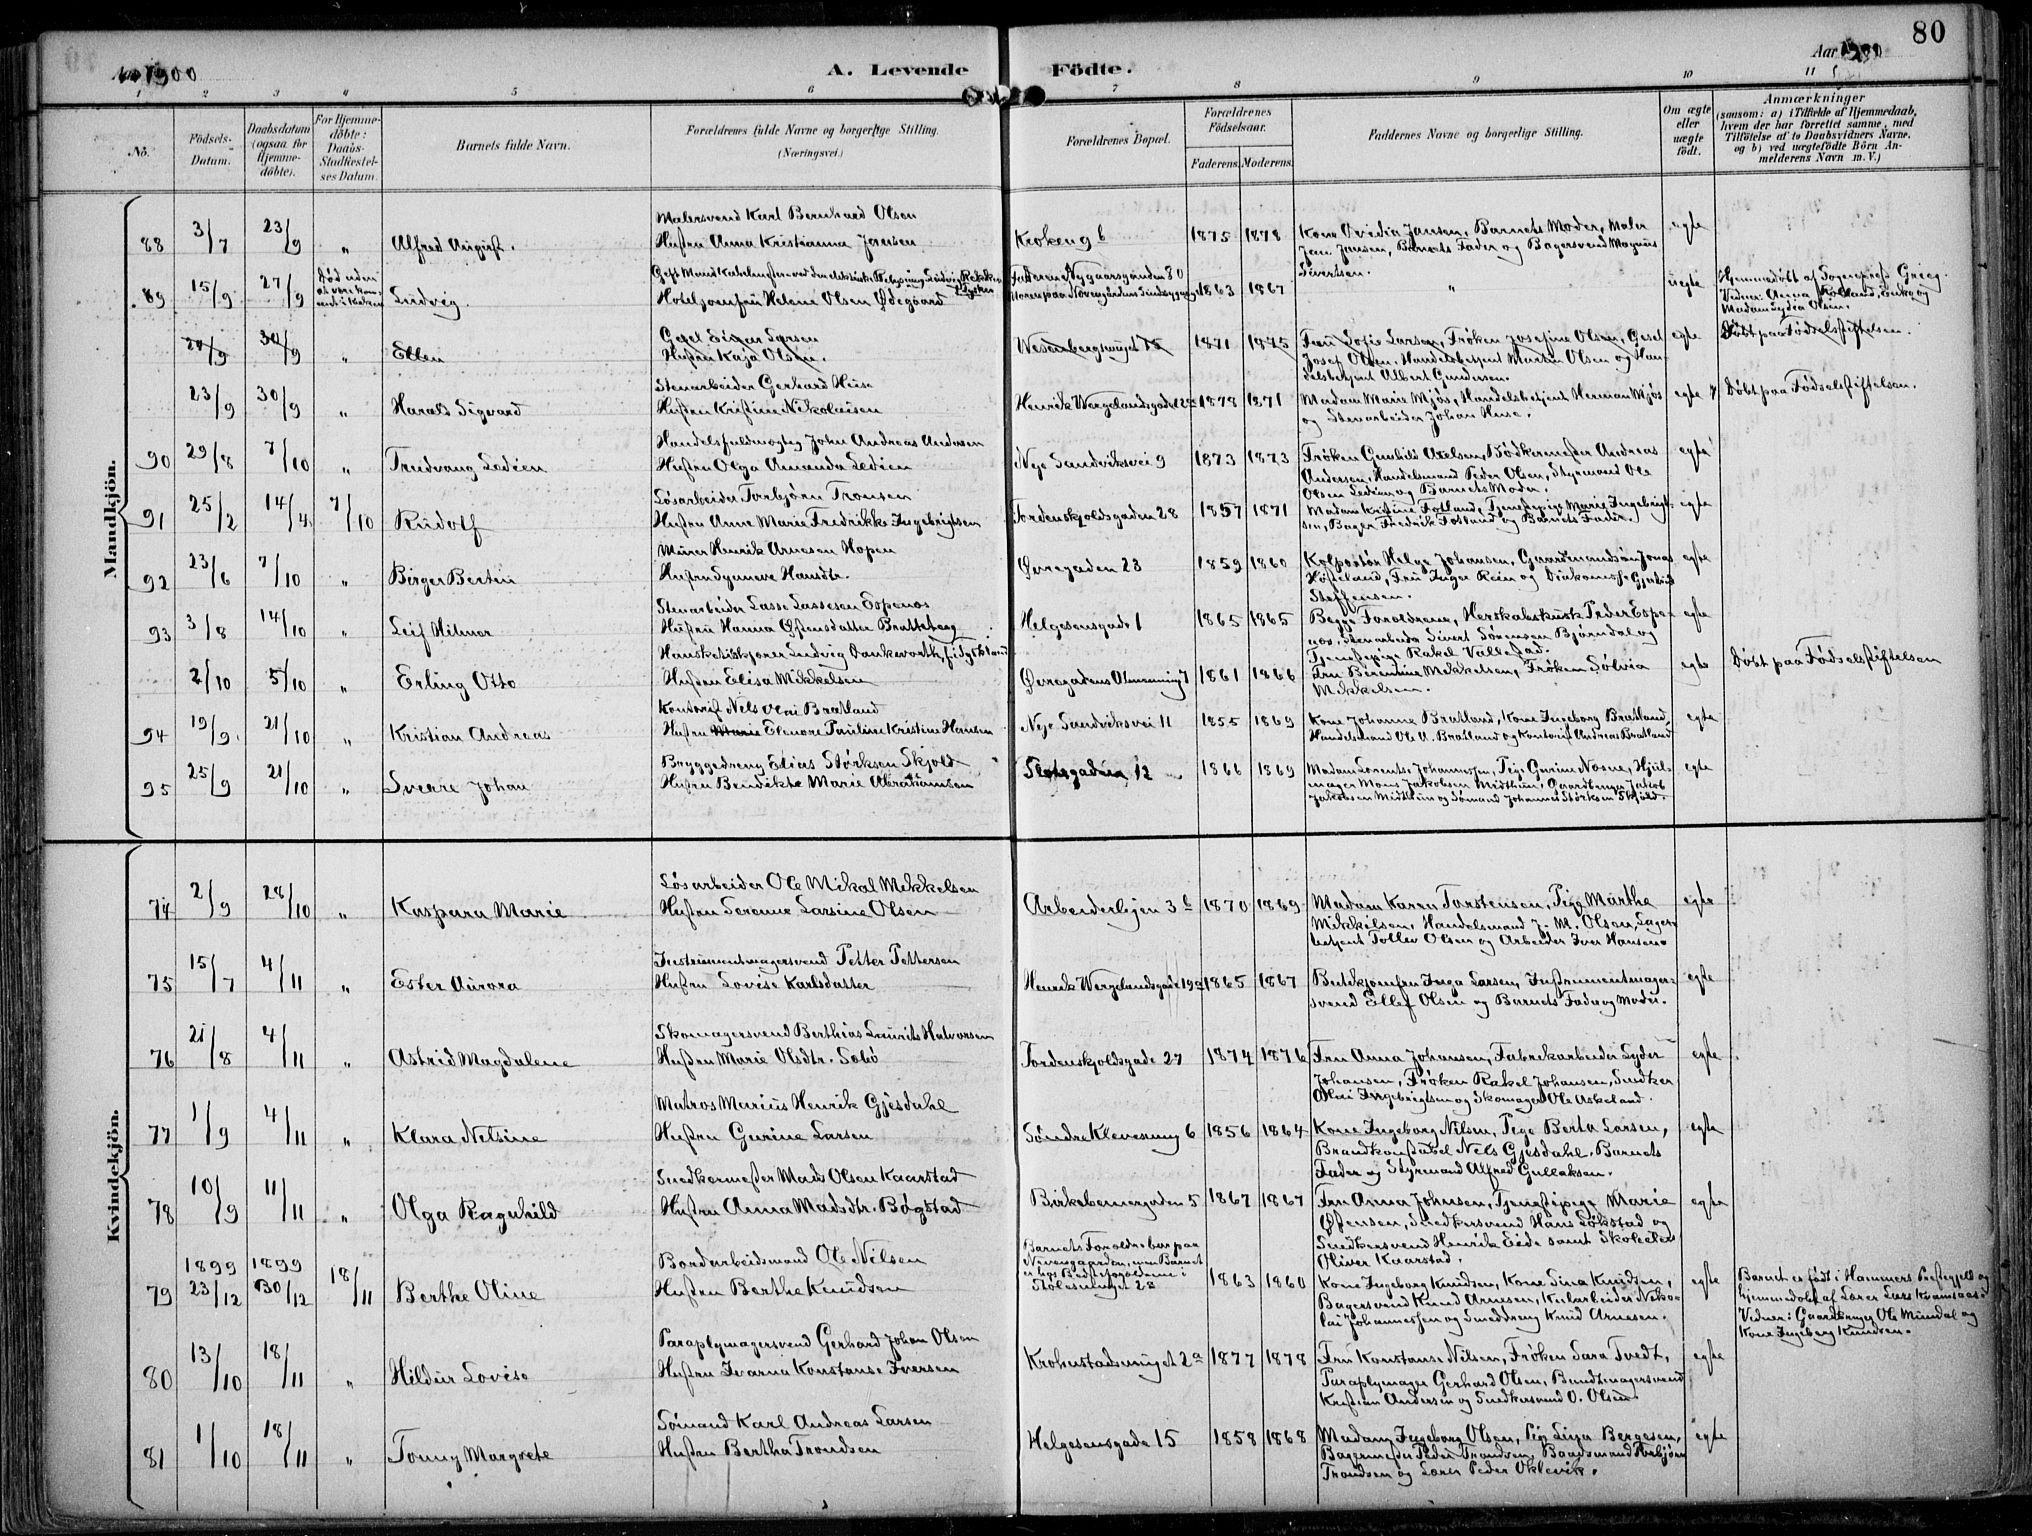 80
Aar 1900
A. Levende Födte.
Aar 1900
1 2 3 4 5 6 7 8 9 10 11
No.
Födsels-Datum.
Daabsdatum (ogsaa for Hjemme-döbte).
For Hjemme-döbte: Daabs-Stadfæstel-ses Datum.
Barnets fulde Navn.
Forældrenes fulde Navne og borgerlige Stilling. (Næringsvei.)
Forældrenes Bopæl.
Forældrenes Födselsaar.
Faderens. Moderens.
Faddernes Navne og borgerlige Stilling.
Om ægte eller uægte födt.
Anmærkninger (saasom: a) i Tilfælde af Hjemmedaab, hvem der har forrettet samme, med Tilföielse af to Daabsvidners Navne, og b) ved uægtefödte Börn An-melderens Navn m. V.)
Mandkjön.
88 3/7 23/9 " Alfred August.
Malersvend Karl Bernhard Olsen
Hustru Anna Kristianna Jensen
Kroken 9 b 1875 1878
Kone Ovidia Jansen, Barnets Moder, Maler
Jan Jansen, Barnets Fader og Bagersvend Magnus
Sivertsen.
egte
89 15/9 27/9 Ludvig.
Hoteljomfru Helene Olsen Ødegaard
1863 1867 "
uegte
Hjemmedøbt af Sognepræst Grieg.
Madam Lydia Olsen.
20/9 30/9 " Ellen
Gesel Einar Larsen
Hustru Kaja Olsen.
Wesenbergsmuget 15 1871 1875
Fru Sofie Larsen, Frøken Josefine Olsen, Gesel
Josef Olsen, Handelsbetjent Martin Olsen og Han-
delsbetjent Albert Gundersen.
egte
Døbt paa Fødselsstiftelsen.
23/9 30/9 " Harald Sigvard
Stenarbeider Gerhard Huse
Hustru Kristine Nikolaisen
Henrik Wergelandsgade 1878 1871
Madam Marie Mjøs, Handelsbetjent Herman Mjøs
og Stenarbeider Johan Huse.
egte
Døbt paa Fødselsstiftelsen.
90 29/8 7/10 " Trudvang Ledien
Handelsfuldmægtig John Andreas Andersen
Hustru Olga Amanda Ledien
Nye Sandviksvei 9 1873 1873
Frøken Gunhild Axelsen, Bødkermester Andreas
Andersen, Handelsmand Peder Olsen, Styrmand Ole
Olsen Ledien og Barnets Moder.
egte
91 25/2 14/4 7/10 Rudolf
Løsarbeider Torbjørn Tronsen
Hustru Anne Marie Fredrikke Ingebrigtsen
Tordenskjoldsgaden 28 1857 1871
Madam Kristine Fotland, Tjenestepige Marie Ingebrigt-
sen, Bager Fredrik Fotland og Barnets Fader.
egte
92 23/6 7/10 " Birger Bertin
Murer Henrik Arnesen Hopen
Hustru Synneve Hansdtr.
Øvregaden 23 1859 1860
Kolportør Helge Johansen, Gaardmandssøn Jonas
Høisteland, Fru Inga Rein og Diakonisse Gjertrud
Steffensen.
egte
93 3/8 14/10 " Leif Hilmar
Stenarbeider Lasse Lassesen Espenos
Hustru Hanna Østensdatter Bratteberg
Helgesensgade 1 1865 1865
Begge Forældrene, Herskabskusk Peder Espe-
nos, Stenarbeider Sivert Sørensen Bjørndal og
Tjenestepige Rakel Vallestad.
egte
2/10 5/10 " Erling Otto
Hustru Elisa Mikkelsen
Øvregadens Almenning 7 1861 1866
Fru Berentine Mikkelsen, Frøken Solvia
Mikkelsen.
egte
Døbt paa Fødselsstiftelsen
94 19/9 21/10 " Kristian Andreas
Kontorist Nels Bratland
Hustru Elenore Pauline Kristine Hansen
Nye Sandviksvei 11 1855 1869
Kone Johanna Bratland, Kone Ingeborg Bratland,
Handelsmand Ole U. Bratland og Kontorist Andreas Bratland
egte
95 25/9 21/10 " Sverre Johan
Bryggedreng Edias Størksen Skjold
Hustru Bendikte Marie Abrahamsen
Slotsgaden 12 1866 1869
Madam Lorentse Johannessen, Pige Gurine Nesne, Hjul-
mager Mons Jakobsen Midthun, Gaardbruger Jakob
Jakobsen Midthun og Sømand Johannes Størksen Skjold.
egte
Kvindekjön.
74 2/9 28/10 " Kaspara Marie
Løsarbeider Ole Mikal Mikkelsen
Hustru Serene Larsine Olsen
Arbeiderlien 3 b 1870 1869
Madam Karen Torstensen, Pige Marthe
Mikkelsen, Handelsmand J. M. Olsen, Lager-
betjent Tollev Olsen og Arbeider Iver Hansen.
egte
75 15/7 4/11 " Ester Aurora
Instrumentmagersvend Petter Pettersen
Hustru Lovise Karlsdatter
Henrik Wergelandsgade 19a 1865 1867
Butikjomfru Inga Larsen, Instrumentmager-
svend Ellef Olsen og Barnets Fader og Moder.
egte
76 21/8 4/11 " Astrid Magdalene
Skomagersvend Berthias Laurits Halvorsen
Hustru Marie Olsdtr. Sobø
Tordenskjoldsgade 27 1874 1876
Fru Anna Johansen, Fabrikarbeider Lyder
Johansen, Frøken Rakel Johansen, Snedker
Olai Ingebrigtsen og Skomager Ole Askeland.
egte
77 1/9 4/11 " Klara Nelsine
Matros Marius Henrik Gjesdahl
Hustru Gurine Larsen
Søndre Klevesmug 6 1856 1864
Kone Ingeborg Nilsen, Pige Berta Larsen,
Brandkonstabel Nels Gjesdahl, Barnets
Fader og Styrmand Alfred Gullaksen.
egte
78 10/9 11/11 " Olga Ragnhild
Snedkermester Mads Olsen Kaarstad
Hustru Anna Madsdtr. Bøgstad
Birkebeinergaden 5 1867 1867
Fru Anna Johnsen, Tjenestepige Marie
Østensen, Snedkersvend Hans Løkstad og
Snedkersvend Henrik Eide samt Skoleelev
Oliver Kaarstad.
egte
79 1899 23/12 1899 30/12 18/11 Berthe Oline
Bordarbeidsmand Ole Nilsen
Hustru Berthe Knudsen
Barnets Forældre bor paa
Nevengaarden, men Barnet
er hos Bedsteforældrene i
Stølesmuget 28
1863 1860
Kone Ingeborg Knudsen, Kone Sina Knudsen,
Bagersvend Knud Arnesen, Kularbeider Niko-
lai Johannessen og Smeddreng Knud Arnesen.
egte
Barnet er født i Hammers Præstegjeld og
hjemmedøbt af Lærer Lars Kvamsaas.
Vidner: Gaardbruger Ole Mundal og
Kone Ingeborg Knudsen.
80 13/10 18/11 " Hildur Lovise
Paraplymagersvend Gerhard Johan Olsen
Hustru Ivarna Konstanse Iversen
Krohnstadsmuget 2a 1877 1878
Fru Konstanse Nilsen, Frøken Sara Tvedt,
Paraplymager Gerhard Olsen, Bundtmagersvend
Kristian Andersen og Snedkersvend O. Olsen.
egte
81 1/10 18/11 " Tonny Margrete
Sømand Karl Andreas Larsen
Hustru Bertha Trondsen
Helgesensgade 15 1858 1868
Madam Ingeborg Olsen, Pige Lina Bergesen,
Bagermester Peder Trondsen, Baadsmand Torbjørn
Trondsen og Lærer Peder Oklevik.
egte